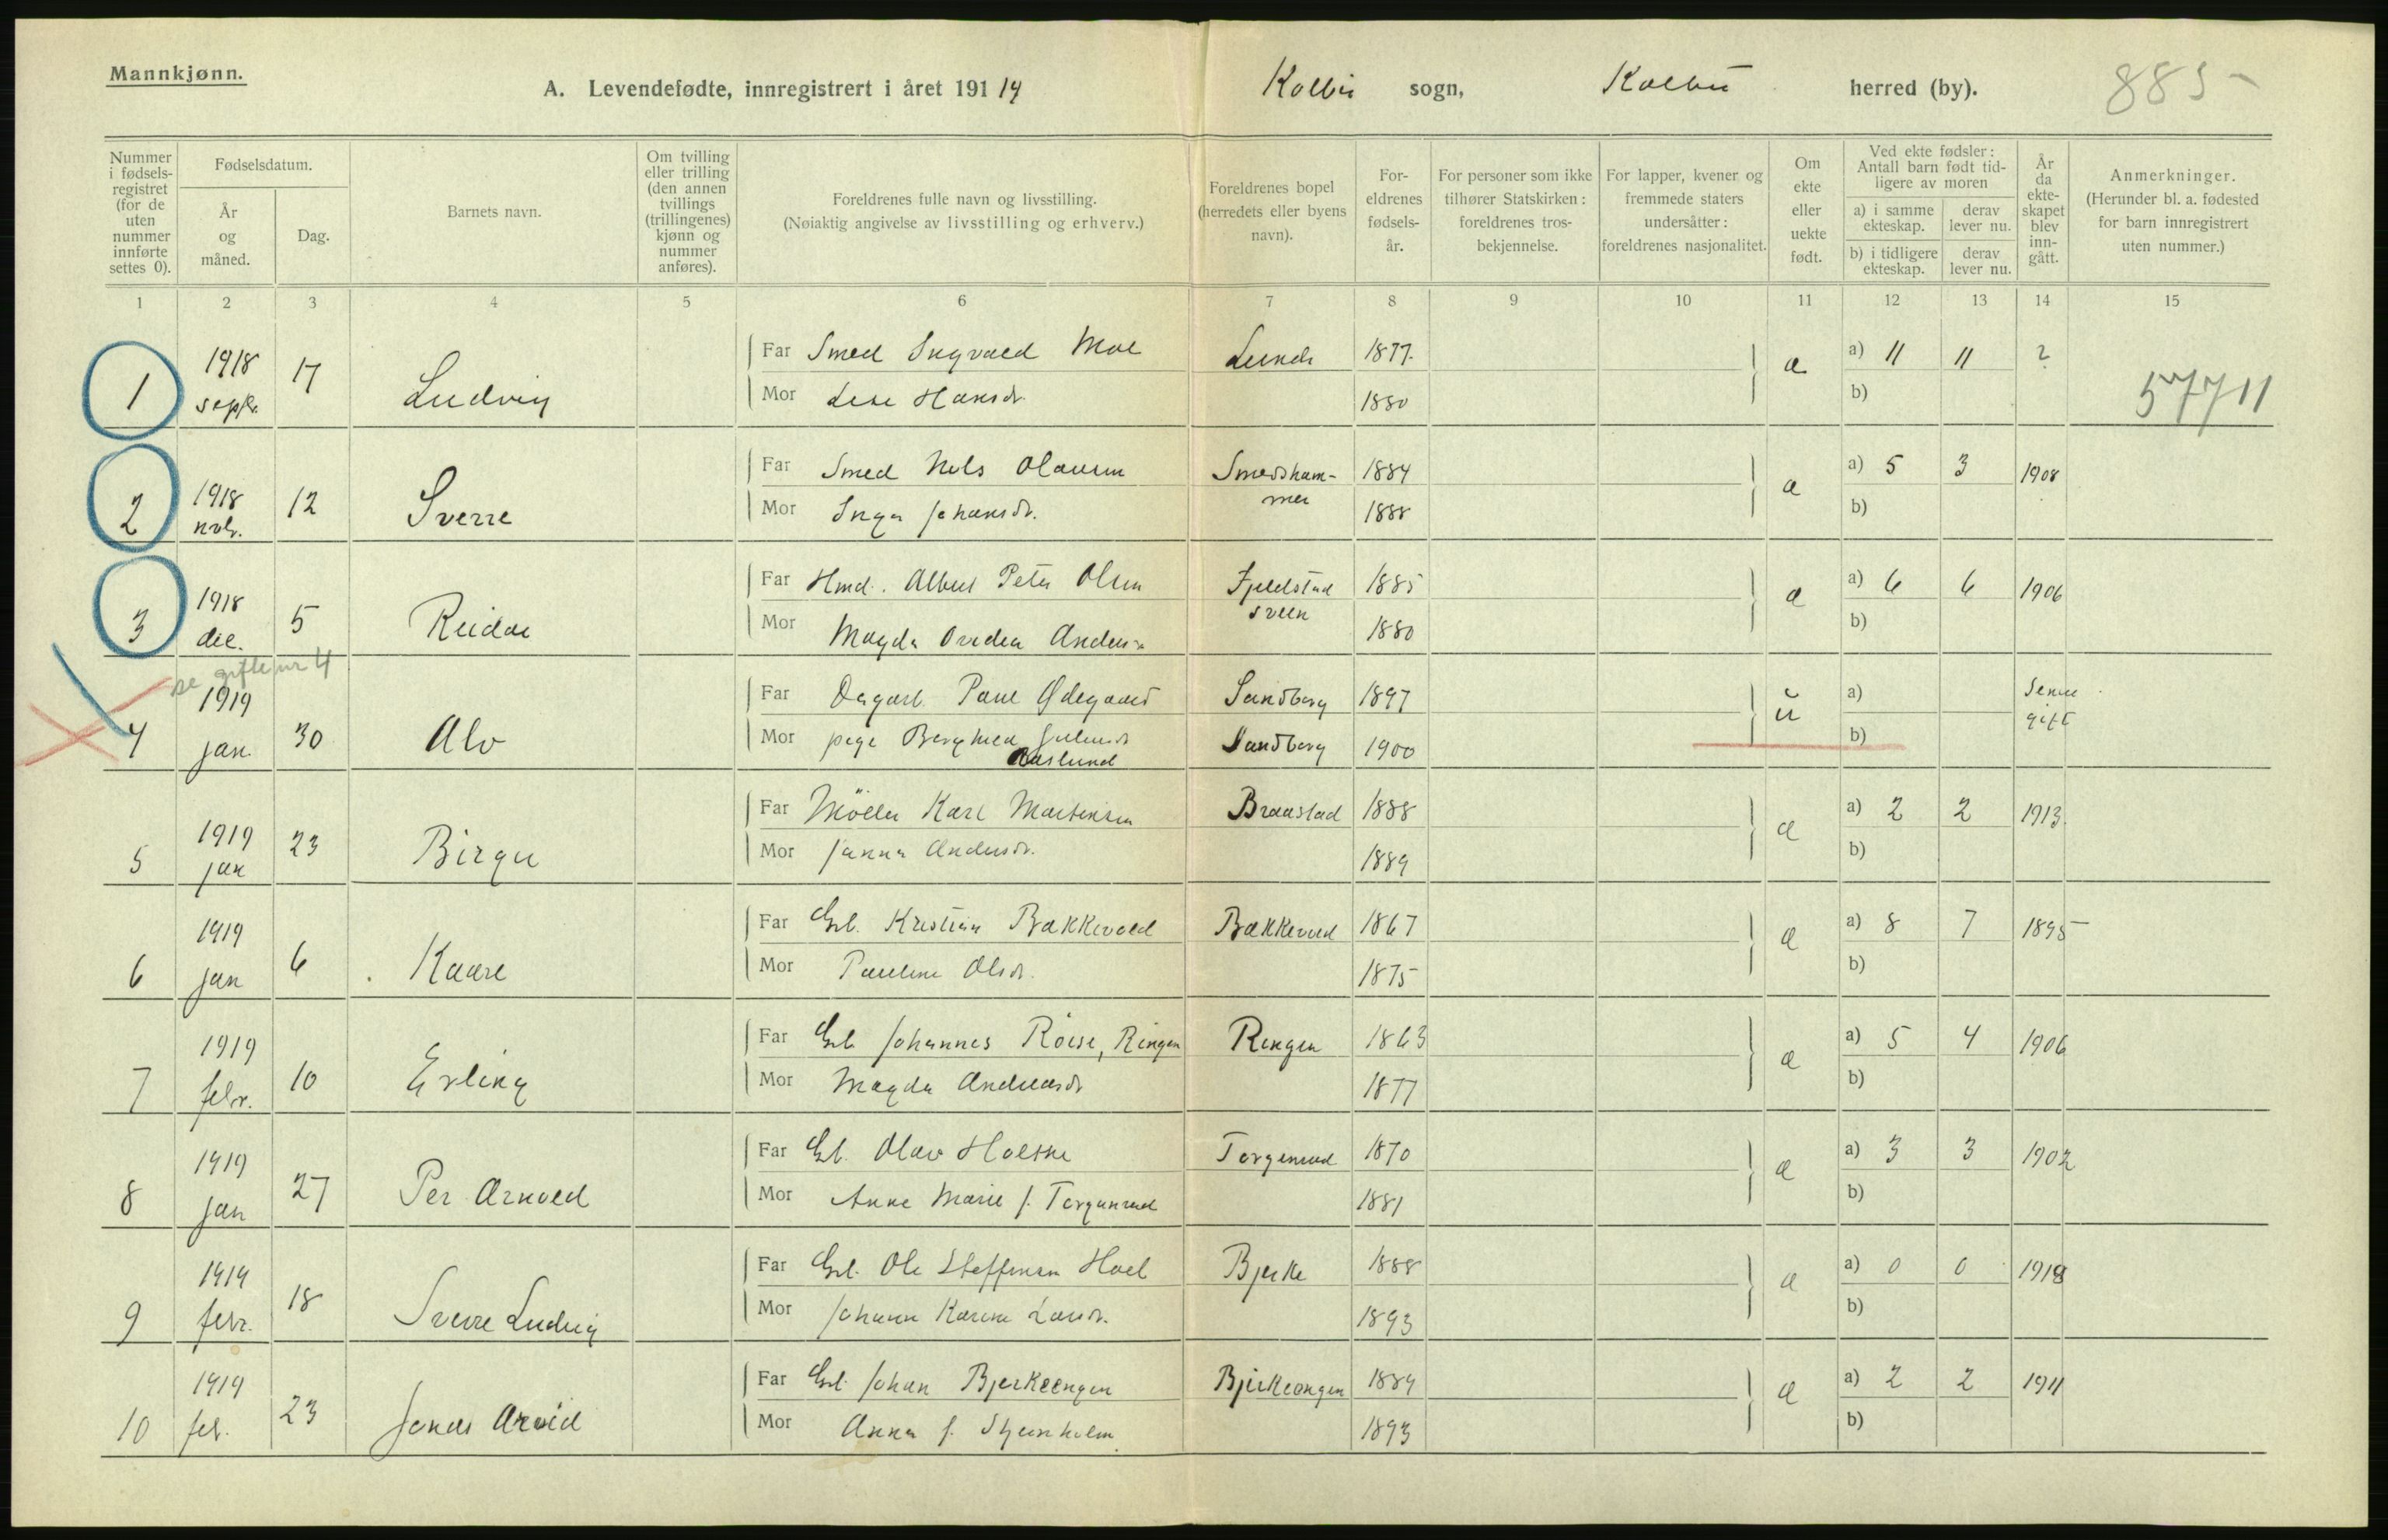 Mannkjønn.
A. Levendefødte, innregistrert i året 191 19 Kolbu sogn, Kolbu herred (by). 885-
Nummer i fødsels-registret (for de uten nummer innførte settes 0).
Fødselsdatum.
År og måned.
Dag.
Barnets navn.
Om tvilling eller trilling (den annen tvillings (trillingenes) kjønn og nummer anføres).
Foreldrenes fulle navn og livsstilling.
(Nøiaktig angivelse av livsstilling og erhverv.)
Foreldrenes bopel (herredets eller byens navn).
For-eldrenes fødsels-år.
For personer som ikke tilhører Statskirken: foreldrenes tros-bekjennelse.
For lapper, kvener og fremmede staters undersåtter: foreldrenes nasjonalitet.
Om ekte eller uekte født.
Ved ekte fødsler: Antall barn født tid-ligere av moren
a) i samme ekteskap.
derav lever nu.
b) i tidligere ekteskap.
derav lever nu.
År da ekte-skapet blev inn-gått.
Anmerkninger.
(Herunder bl. a. fødested for barn innregistrert uten nummer.)
1 2 3 4 5 6 7 8 9 10 11 12 13 14 15
1 1918 sept. 17 Ludvig
Far Smed Ingvald Moe Lunds 1877. æ a) 11 11 ?
Mor Lise Hansdr. 1880 b)
57711
2 1918 nvbr. 12 Sverre
Far Smed Nils Olausen Smedsham-mer 1884 æ a) 5 3 1908
Mor Inga Johansdr. 1888 b)
3 1918 dec. 5 Reidar
Far Hmd. Albert Peter Olsen Fjeldstad sveen 1885 æ a) 6 6 1906
Mor Magda Ovidea Andersdr 1880 b)
se gifte nr 4
4 1919 jan. 30 Alv
Far Dagarb. Paul Ødegaard Sandberg 1897 ŭ a) Senere gift
Mor pige Berghild Juliusdr Aaslund Sandberg 1900 b)
5 1919 jan 23 Birger
Far Möller Karl Martinsen Braastad 1888 æ a) 2 2 1913.
Mor Janna Andersdr. 1889 b)
6 1919 jan 6 Kaare
Far Grb. Kristian Bakkevold Bakkevold 1867 æ a) 8 7 1895
Mor Pauline Olsdr. 1875 b)
7 1919 febr. 10 Erling
Far Grb Johannes Röise, Ringen Ringen 1863 æ a) 5 4 1906
Mor Magda Andreasdr 1877 b)
8 1919 jan 27 Per Arnold
Far Grb. Olav Holthe Torgunrud 1870 æ a) 3 3 1902
Mor Anne Marie f. Torgunrud 1881 b)
9 1919 febr. 18 Sverre Ludvig
Far Grb. Ole Steffensen Hoel Bjerke 1888 æ a) 0 0 1918
Mor Johanne Karine Larsdr. 1893 b)
10 1919 feb. 23 Jonas Arvid
Far Grb. Johan Bjerkeengen Bjerkeengen 1889 æ a) 2 2 1911
Mor Anna f. Stjernholm 1893 b)